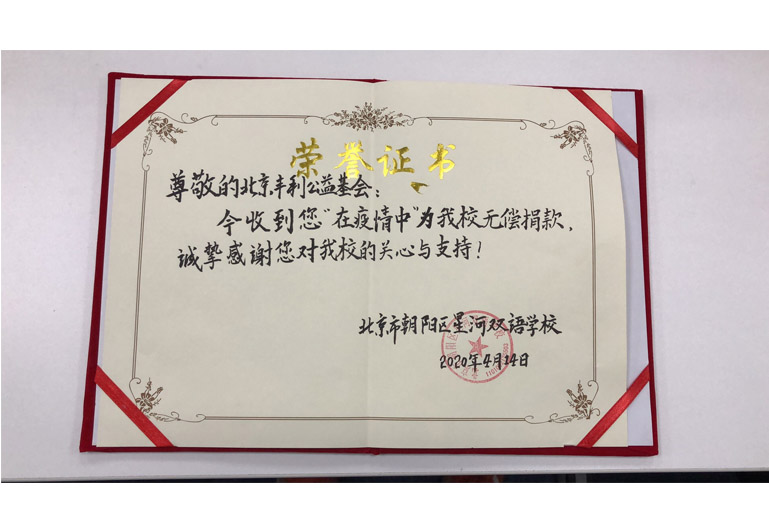 荣誉证书
尊敬的北京丰利公益基会：
今收到您“在疫情中”为我校无偿捐款，
诚挚感谢您对我校的关心与支持！
北京市朝阳区星河双语学校
2020年4月14日